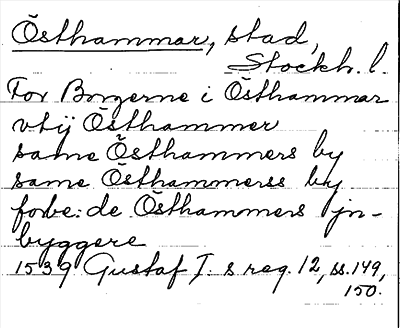 Östhammar, stad,
Stockh. l.
For Borgerne i Östhammar
vtij Östhammer
same Östhammers by
same Östhammerss by
forbe: de Östhammers jn-
byggere
1539 Gustaf I. s reg. 12, ss. 149,
150.